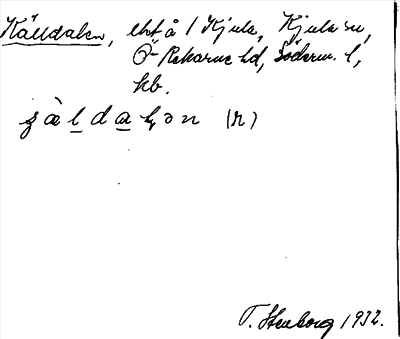 Källdalen, lht å 1 Kjula, Kjula sn,
Ö-Rekarne hd, Söderm. l,
kb.
(n)
T. Stenborg 1932.